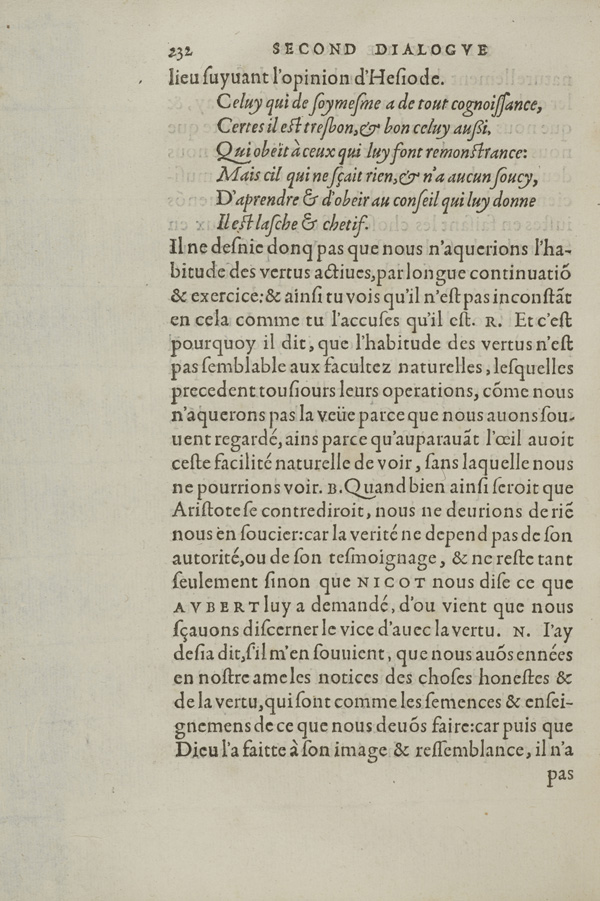 232 SECOND DIALOGVE
lieu ſuyuant l'opinion d'Heſiode.
Celuy qui de ſoymeſme a de tout cognoiſſance,
Certes il eſt treſbon, & bon celuy auſſi,
Qui obeït à ceux qui luy font remonſtrance:
Mais cil qui ne ſçait rien, & n'a aucun ſoucy,
D'aprendre & d'obeir au conſeil qui luy donne
Il eſt laſche & chetif.
Il ne deſnie donq pas que nous n'aquerions l'ha-
bitude des vertus actiues, par longue continuatiõ
& exercice: & ainſi tu vois qu'il n'eſt pas inconſtãt
en cela comme tu l'accuſes qu'il eſt. R. Et c'eſt
pourquoy il dit, que l'habitude des vertus n'eſt
pas ſemblable aux facultez naturelles, leſquelles
precedent touſiours leurs operations, cõme nous
n'aquerons pas la veüe parce que nous auons ſou-
uent regardé, ains parce qu'auparauãt l'œil auoit
ceſte facilité naturelle de voir, ſans laquelle nous
ne pourrions voir. B. Quand bien ainſi ſeroit que
Ariſtote ſe contrediroit, nous ne deurions de riẽ
nous en ſoucier: car la verité ne depend pas de ſon
autorité, ou de ſon teſmoignage, & ne reſte tant
ſeulement ſinon que NICOT nous diſe ce que
AVBERT luy a demandé, d'ou vient que nous
ſçauons diſcerner le vice d'auec la vertu. N. I'ay
deſia dit, s'il m'en ſouuient, que nous auõs ennées
en noſtre ame les notices des choſes honeſtes &
de la vertu, qui ſont comme les ſemences & enſei-
gnemens de ce que nous deuõs faire: car puis que
Dieu l'a faitte à ſon image & reſſemblance, il n'a
pas